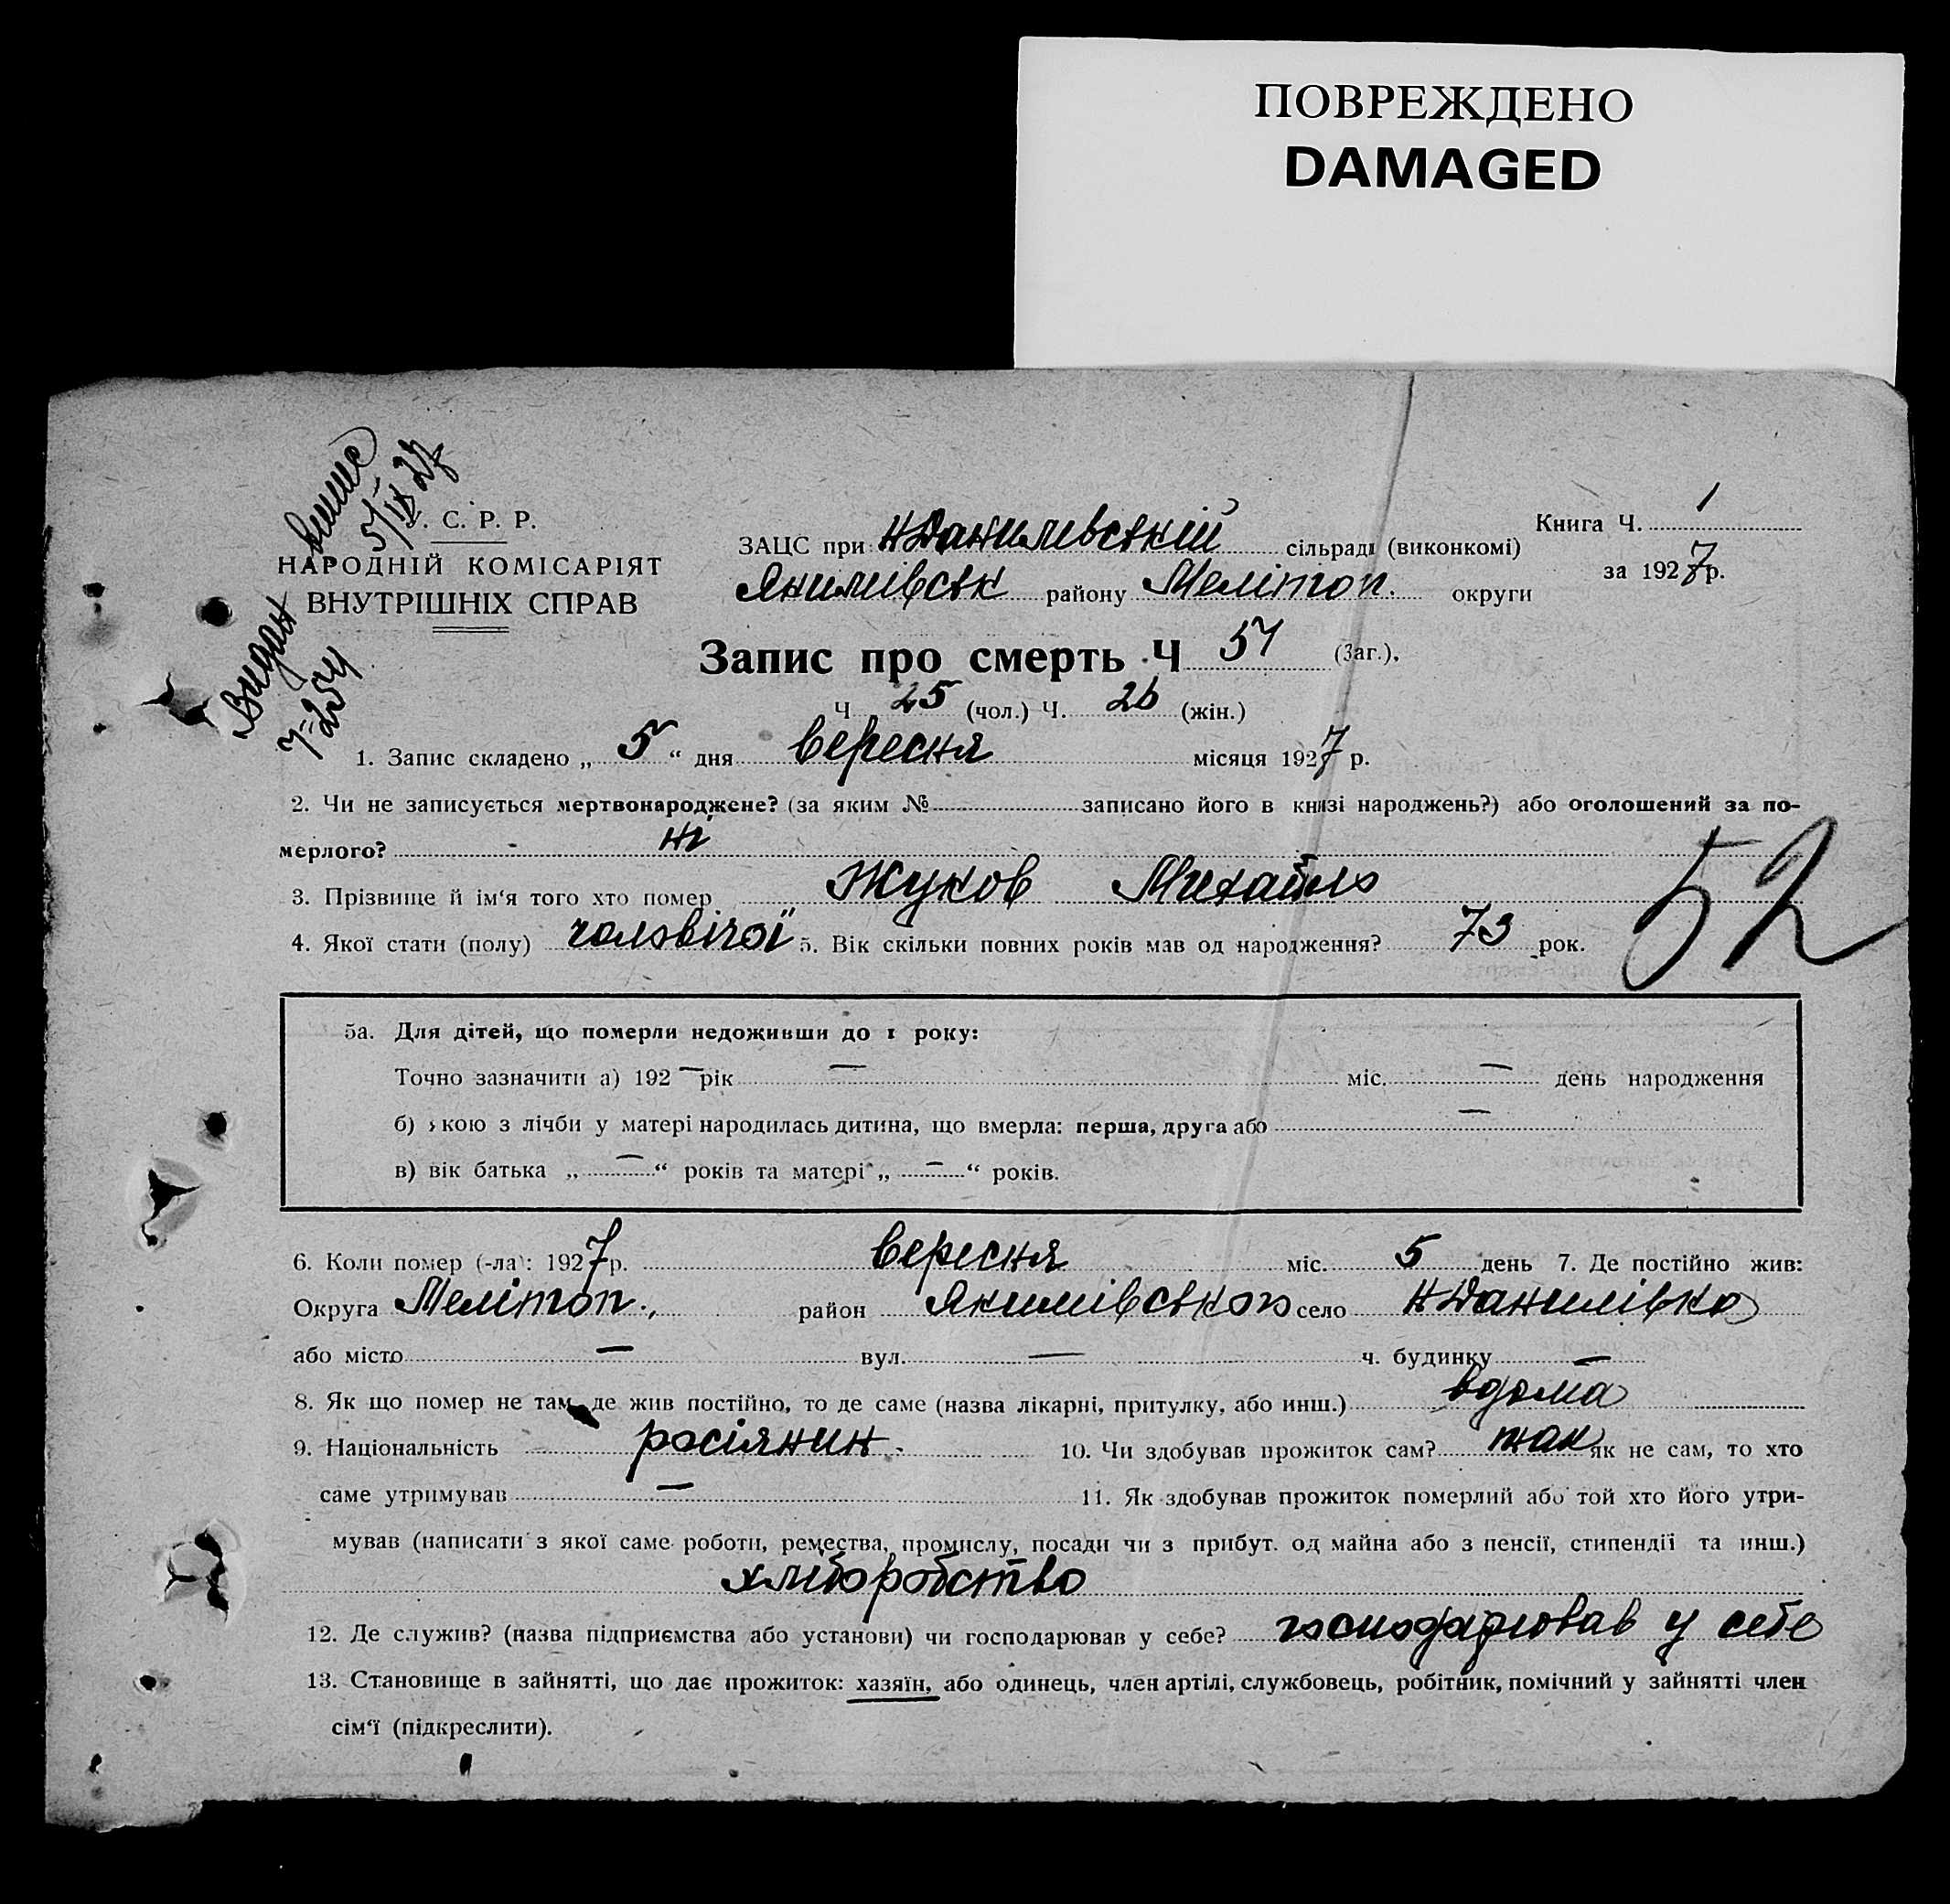 ПОВРЕЖДЕНО
DAMAGED
Видан
виписе
5/IX 27
7-254
У. С. Р. Р.
НАРОДНІЙ КОМІСАРІЯТ
ВНУТРІШНІХ СПРАВ
ЗАЦС при НДанилевській сільраді (виконкомі)
Якимівськ району Меліптоп. округи
Книга Ч. 1
за 1927 р.
Запис про смерть Ч 51 (Заг.).
Ч 25 (чол.) Ч. 26 (жін.)
1. Запис складено „ 5 “ дня вересня місяця 1927 р.
2. Чи не записується мертвонароджене? (за яким № записано його в книзі народжень?) або оголошений за по-
мерлого? ні
3. Прізвище й ім‘я того хто помер Жуков Михайло
52
4. Якої стати (полу) чоловічої 5. Вік скільки повних років мав од народження? 73 рок.
5а. Для дітей, що померли недоживши до 1 року:
Точно зазначити а) 192 — рік — міс. — день народження
б) якою з лічби у матері народилась дитина, що вмерла: перша, друга або —
в) вік батька „ — “ років та матері „ — “ років.
6. Коли помер (-ла): 1927 р. вересня міс. 5 день 7. Де постійно жив:
Округа Меліtоп. район Якимівського село НДанилівка
або місто — вул. — ч. будинку —
8. Як що помер не там, де жив постійно, то де саме (назва лікарні, притулку, або инш.) вдома
9. Національність росіянин. 10. Чи здобував прожиток сам? так як не сам, то хто
саме утримував — 11. Як здобував прожиток померлий або той хто його утри-
мував (написати з якої саме роботи, ремества, промислу, посади чи з прибут. од майна або з пенсії, стипендії та инш.)
хліборобство
12. Де служив? (назва підприємства або установи) чи господарював у себе? господарював у себе
13. Становище в зайнятті, що дає прожиток: хазяїн, або одинець, член артілі, службовець, робітник, помічний у зайнятті член
сім‘ї (підкреслити).